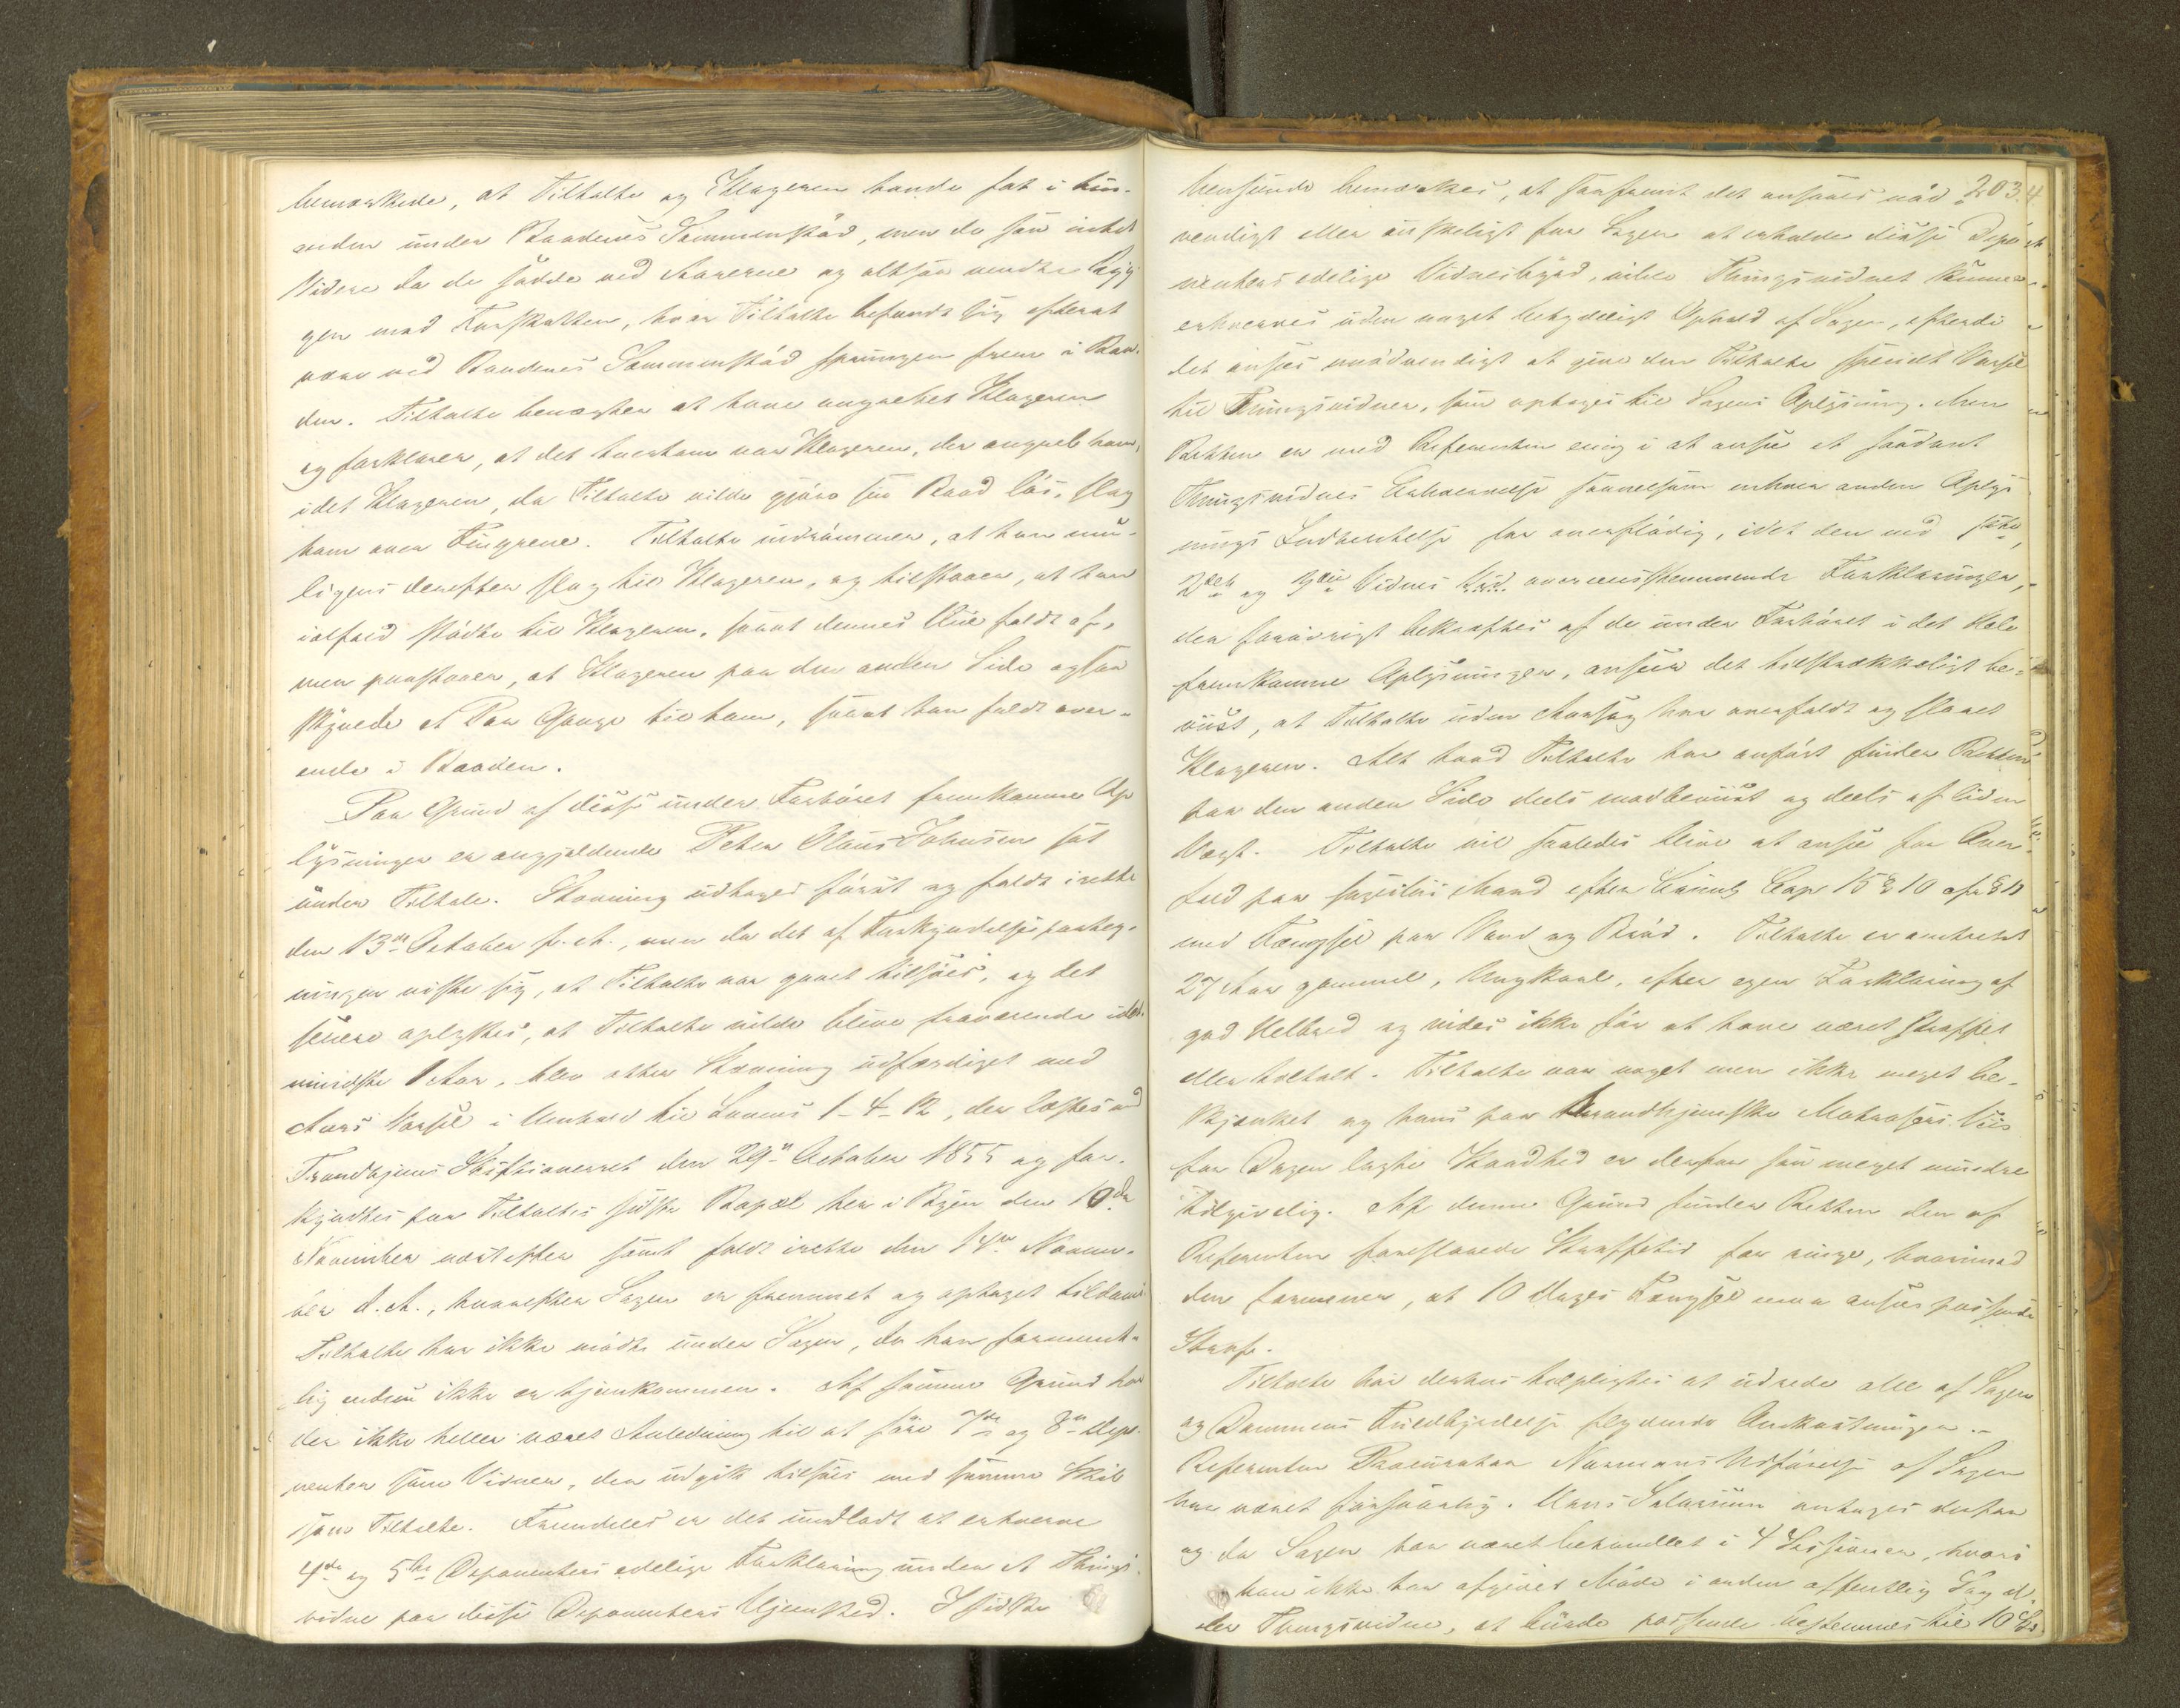 bemærkede, at Tiltalte og Klageren havde fat i hin-
anden under Baadenes Sammenstød, men de saae intet
Videre da de sadde ved Aarerne og altsaa vendte Ryg-
gen mod Forskotten, hvor Tiltalte befandt sig efterat
være ved Baadenes Sammenstød sprungen frem i Baa-
den. Tiltalte benægter at have angrebet Klageren
og forklarer, at det tvertom var Klageren, der angreb ham,
idet Klageren, da Tiltalte vilde gjøre sin Baad løs, slog
ham over Fingrene. Tiltalte indrømmer, at han mu-
ligens derefter slog til Klageren, og tilstaaer, at han
ialfald stødte til Klageren, saaat dennes Hue faldt af,
men paastaaer, at Klageren paa den anden Side ogsaa
skyvede et Par Gange til ham, saaat han faldt over-
ende i Baaden.
Paa Grund af disse under Forhøret fremkomne Op-
lysninger er angjældende Peter Claus Johnsen sat
under Tiltale. Stævning udtoges først og faldt irette
den 13de October f. A., men da det af Forkyndelsespaateg-
ningen viste sig, at Tiltalte var gaaet tilsøes, og det
senere oplystes, at Tiltalte vilde blive fraværende idet-
mindste 1 Aar, blev atter Stævning udfærdiget med
Aars Varsel i Henhold til Lovens 1-4-12, der læstes ved
Trondhjems Stiftsoverret den 29de October 1855 og for-
kyndtes paa Tiltaltes sidste Bopæl her i Byen den 10de
November næstefter samt faldt irette den 14de Novem-
ber d. A., hvorefter Sagen er fremmet og optaget tildoms
Tiltalte har ikke mødt under Sagen, da han forment-
lig endnu ikke er hjemkommen. Af samme Grund har
der ikke heller været Anledning til at føre 7de og 8de Depo-
nenter som Vidner, der udgik tilsøes med samme Skib
som Tiltalte. Fremdeles er det undladt at erhverve
4de og 5te Deponenters edelige Forklaring under et Things-
vidne paa disse Deponenters Hjemsted. I sidste
203.
Henseende bemærkes, at saafremt det ansaaes nød-
vendigt eller ønskeligt for Sagen at erholde disse Depo-
nenters edelige Vidnesbyrd, vilde Thingsvidnet kunne
erhverves uden noget betydeligt Ophold af Sagen, efterdi
det ansees unødvendigt at give den Tiltalte specielt Varsel
til Thingsvidner, som optages til Sagens Oplysning. Men
Retten er med Referenten enig i at ansee et saadant
Thingsvidnes Erhvervelse saavelsom enhver anden Oplys-
nings Indhentelse for overflødig, idet den ved 1ste,
2det og 3die Vidnes overeensstemmende Forklaringer,
der forøvrigt bekræftes af de under Forhøret i det Hele
fremkomne Oplysninger, anseer det tilstrækkeligt be-
viist, at Tiltalte uden Aarsag har overfaldt og slaaet
Klageren. Alt hvad Tiltalte har anført finder Retten
paa den anden Side deels modbeviist og deels af liden
Vægt. Tiltalte vil saaledes blive at ansee for Over-
fald paa sagesløs Mand efter Criminall. Cap. 15 § 10 cfr. § 11
med Fængsel paa Vand og Brød. Tiltalte er omtrent
27 Aar gammel, Ungkarl, efter egen Forklaring af
god Helbred og vides ikke før at have været straffet
eller tiltalt. Tiltalte var noget men ikke meget be-
skjænket og hans paa Trondhjemske Matrosers Viis
for Dagen lagte Raadhed er derfor saa meget mindre
tilgivelig. Af denne Grund finder Retten den af
Referenten foreslaaede Straffetid for ringe, hvorimod
den formener, at 10 Dages Fængsel maa ansees passende
Straf.
Tiltalte bør derhos tilpligtes at udrede alle af Sagen
og Dommens Fuldbyrdelse flydende Omkostninger.
Referenten Procurator Normans Udførelse af Sagen
har været forsvarlig. Hans Salarium antages derfor
og da Sagen har været behandlet i 4 Sessioner, hvori
han ikke har afgivet Møde i anden offentlig Sag el-
ler Thingsvidne, at burde passende bestemmes til 10 Spd.